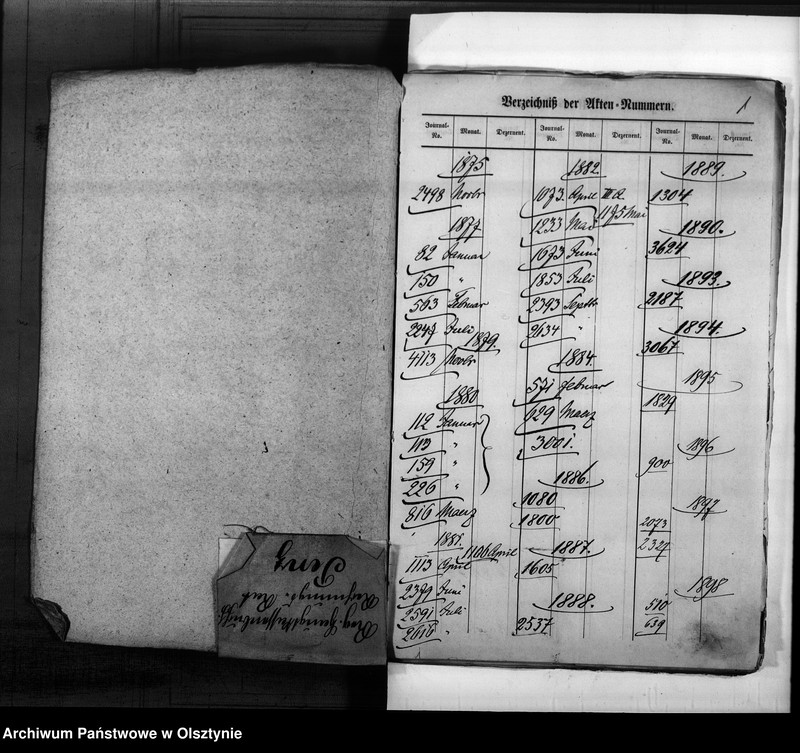 Verzeichniß der Akten-Nummern.
1
Journal-No. Monat. Dezernent.
1875
2498 Novbr
1877
82 Januar
150 "
563 Februar
2247 Juli
1879.
4113 Novbr
1880
112 Januar
113 "
159 "
226 "
816 Maerz
1881.
1106 April
1113 April
2379 Juni
2591 Juli
2616 "
Journal-No. Monat. Dezernent.
1882.
1073. April
1175 Mai
1233 Mai
1673 Juni
1853 Juli
2393 Septb
2634 "
1884.
571 Februar
629 Maerz
3001.
1886.
1080
1800
1887.
1605
1888.
2537
Journal-No. Monat. Dezernent.
1889.
1304
1890.
3624
1893.
2187
1894.
3067
1895
1829
1896
900
1897
2073
2327
1898
510
639
Archiwum Państwowe w Olsztynie